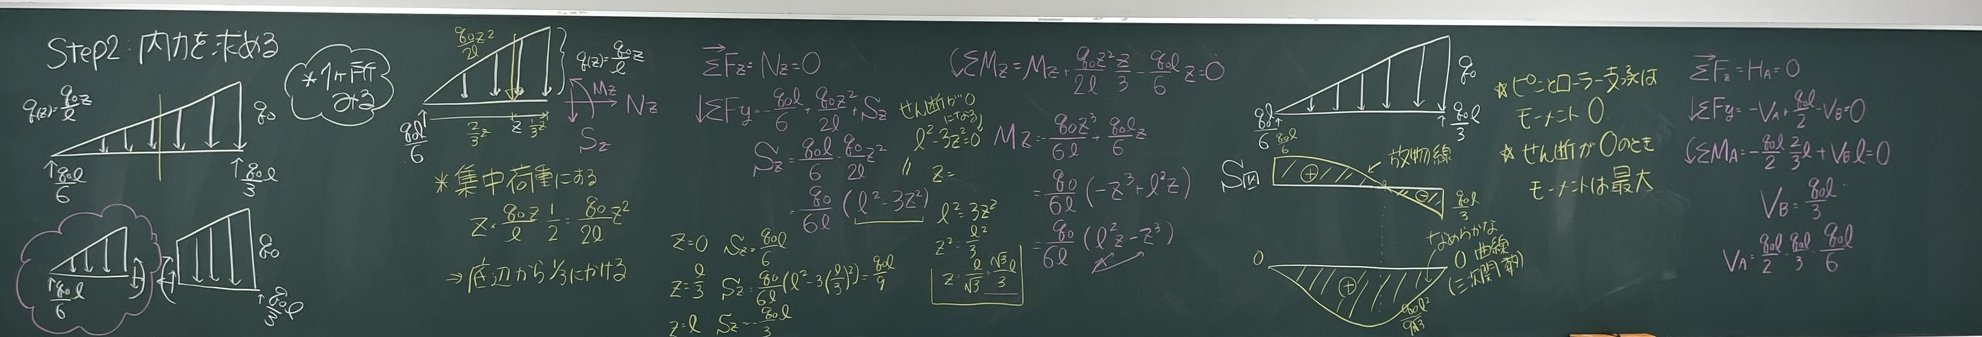 Step2:内力を求める
*1ヶ所
q(z)=q₀z/l
q₀
q₀l/6
q₀l/3
q₀
q₀l/6
q₀z²/2l
q(z)=q₀/l z
Mz
Nz
Sz
q₀l/6
2/3 z
z
1/3 z
*集中荷重にする
z×q₀z/l 1/2=q₀/2l z²
⇒底辺から1/3にかける
ΣFz=Nz=0
↓ΣFy=-q₀l/6+q₀z²/2l+Sz
Sz=q₀l/6-q₀/2l z²
=q₀/6l(l²-3z²)
z=0 Sz=q₀l/6
z=l/3 Sz=q₀/6l(l²-3(l/3)²)=q₀l/9
z=l Sz=-q₀l/3
せん断が0
になる
l²-3z²=0
z=
l²=3z²
z²=l²/3
z=l/√3=√3/3 l
ΣMz=Mz+q₀z²/2l z/3-q₀l/6 z=0
Mz=-q₀z³/6l+q₀l/6 z
=q₀/6l(-z³+l²z)
=q₀/6l(l²z-z³)
q₀
q₀l/6
q₀l/6
q₀l/3
S図
⊕
放物線
⊖
q₀l/3
0
⊕
0
なめらかな
曲線
(三次関数)
q₀l²/9√3
☆ピンとローラー支承は
モーメント0
☆せん断が0のとき
モーメントは最大
ΣFz=HA=0
↓ΣFy=-VA+q₀l/2-VB=0
ΣMA=-q₀l/2 2/3 l+VBl=0
VB=q₀l/3
VA=q₀l/2-q₀l/3=q₀l/6